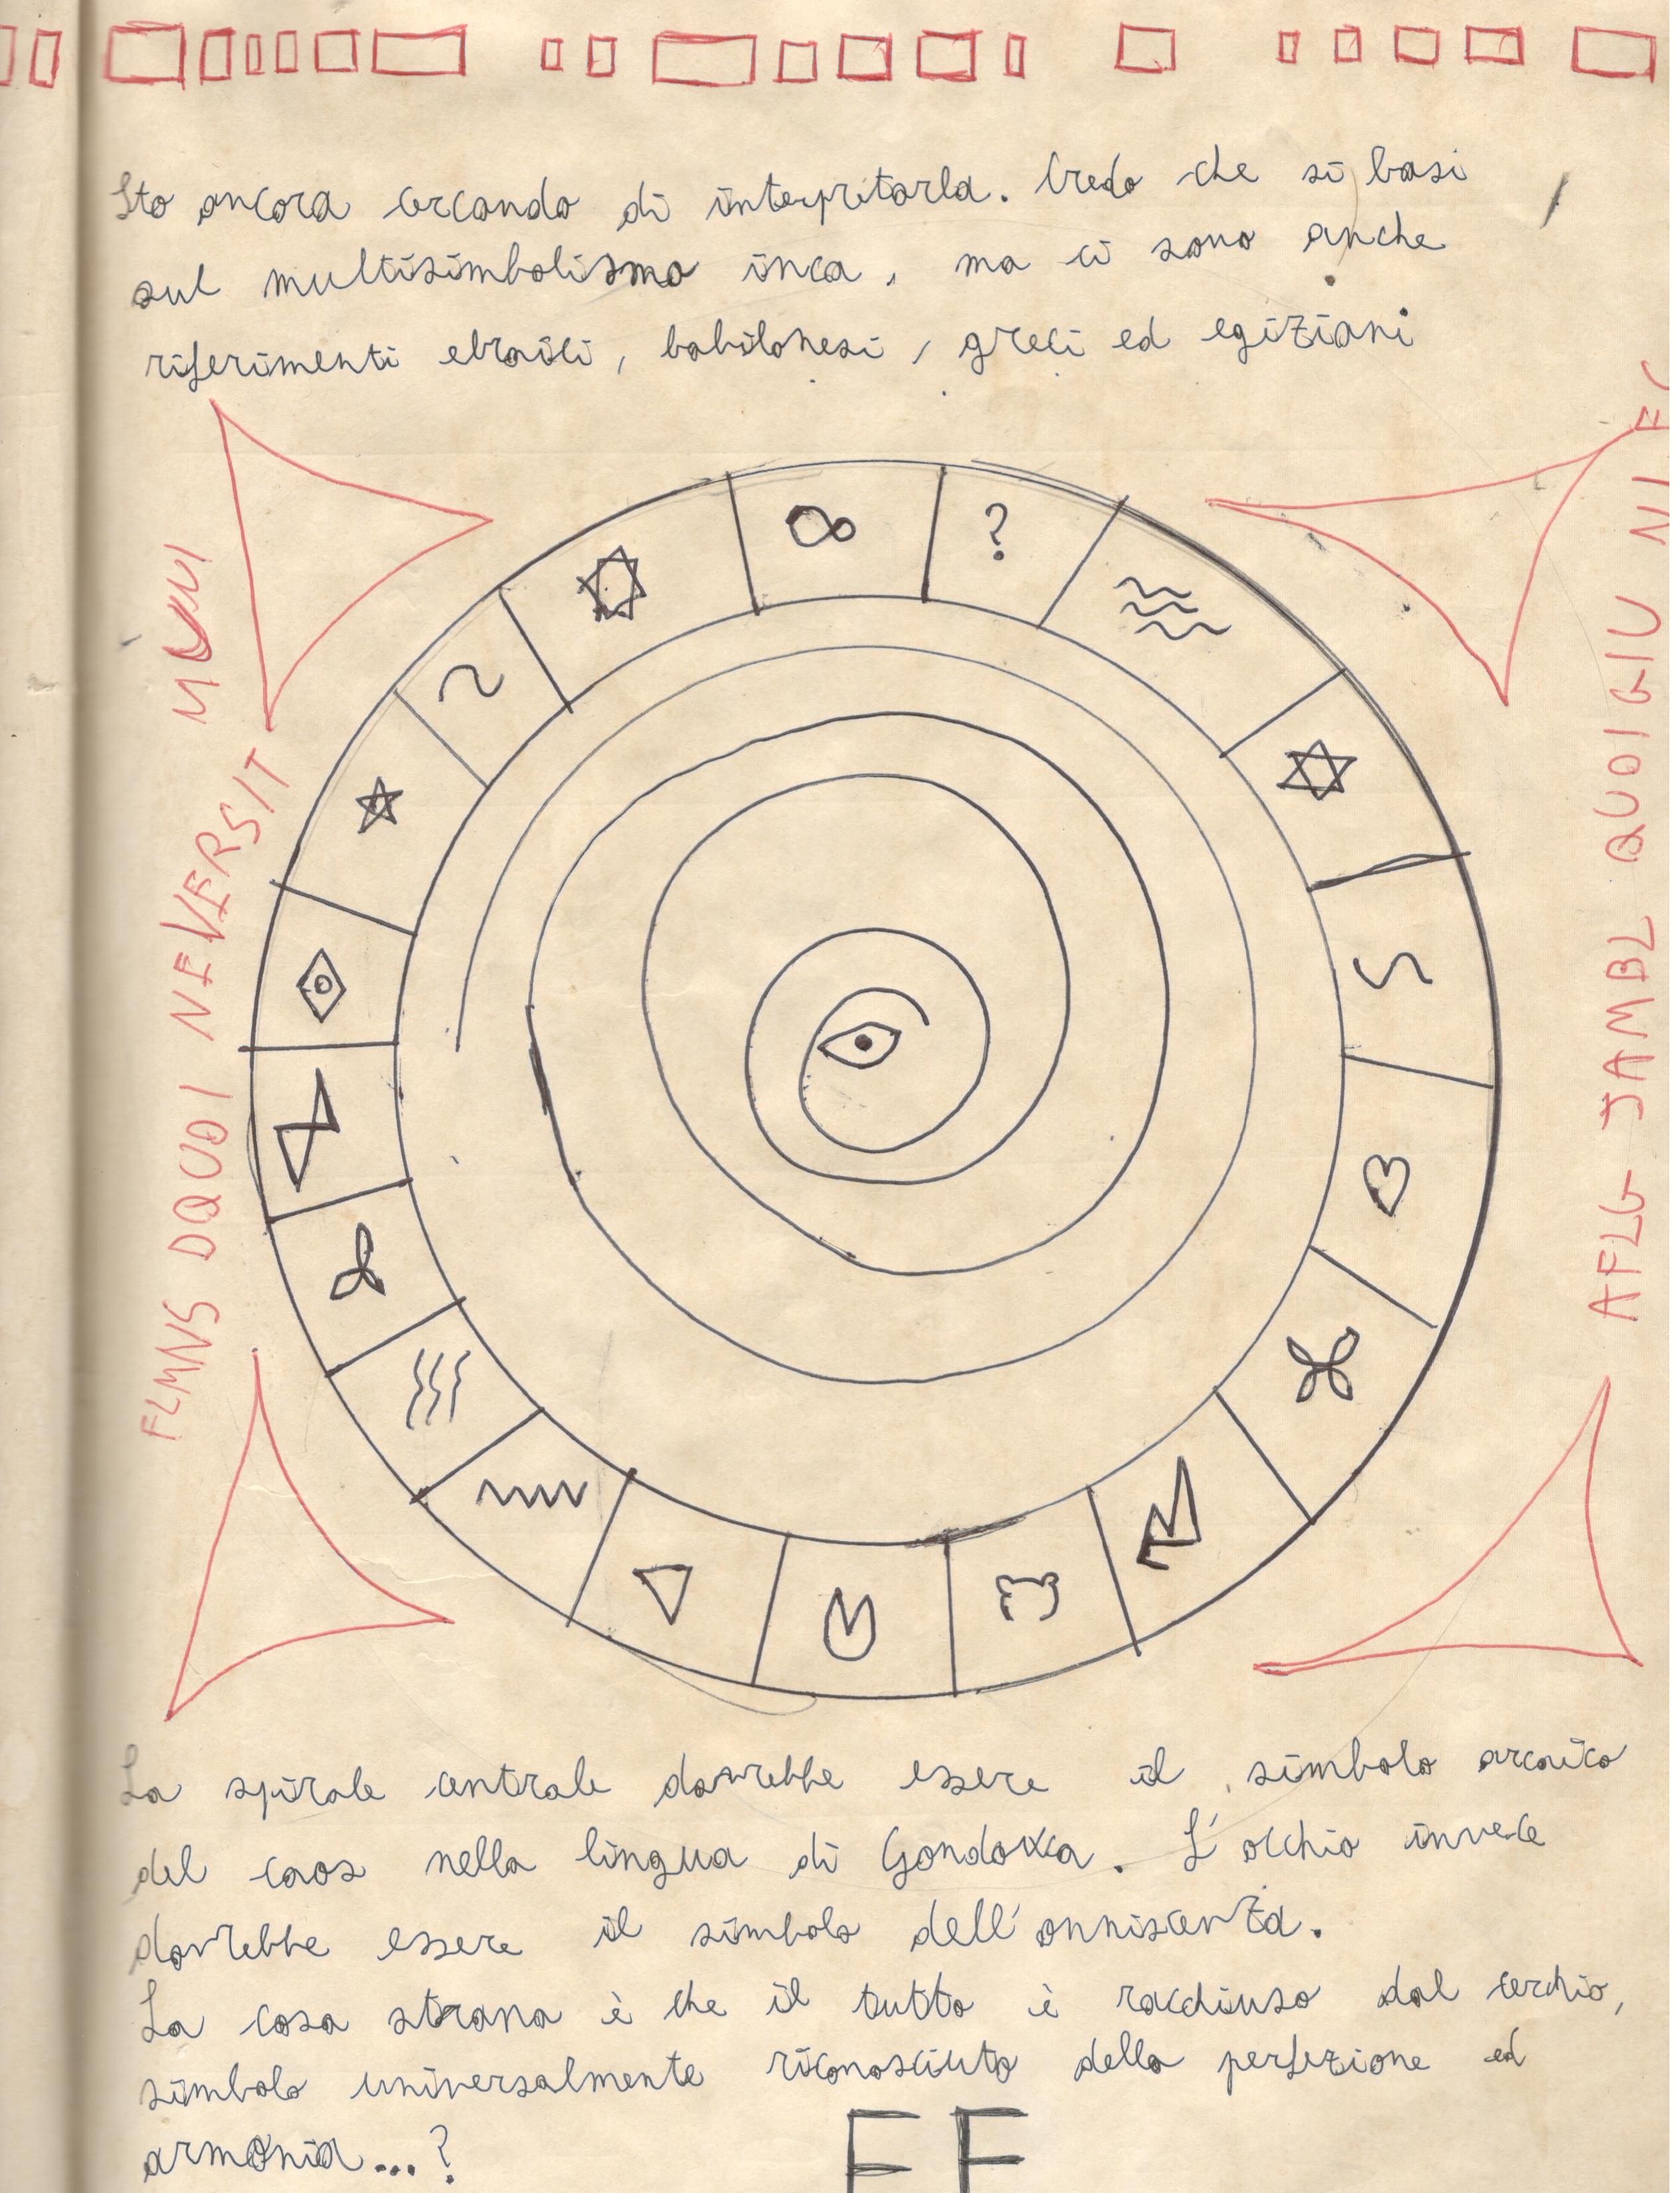 Sto ancora cercando di interpretarla. Credo che si basi
sul multisimbolismo inca, ma ci sono anche
riferimenti ebraici, babilonesi, greci ed egiziani
?
FLMNS DQUOI NEVERSIT
AFLG JAMBL QUOIGIU NI
La spirale centrale dovrebbe essere il simbolo arcaico
del caos nella lingua di . L'occhio invece
dovrebbe essere il simbolo dell'onniscenza.
La cosa strana è che il tutto è racchiuso dal cerchio,
simbolo universalmente riconosciuto della perfezione ed
armonia...?